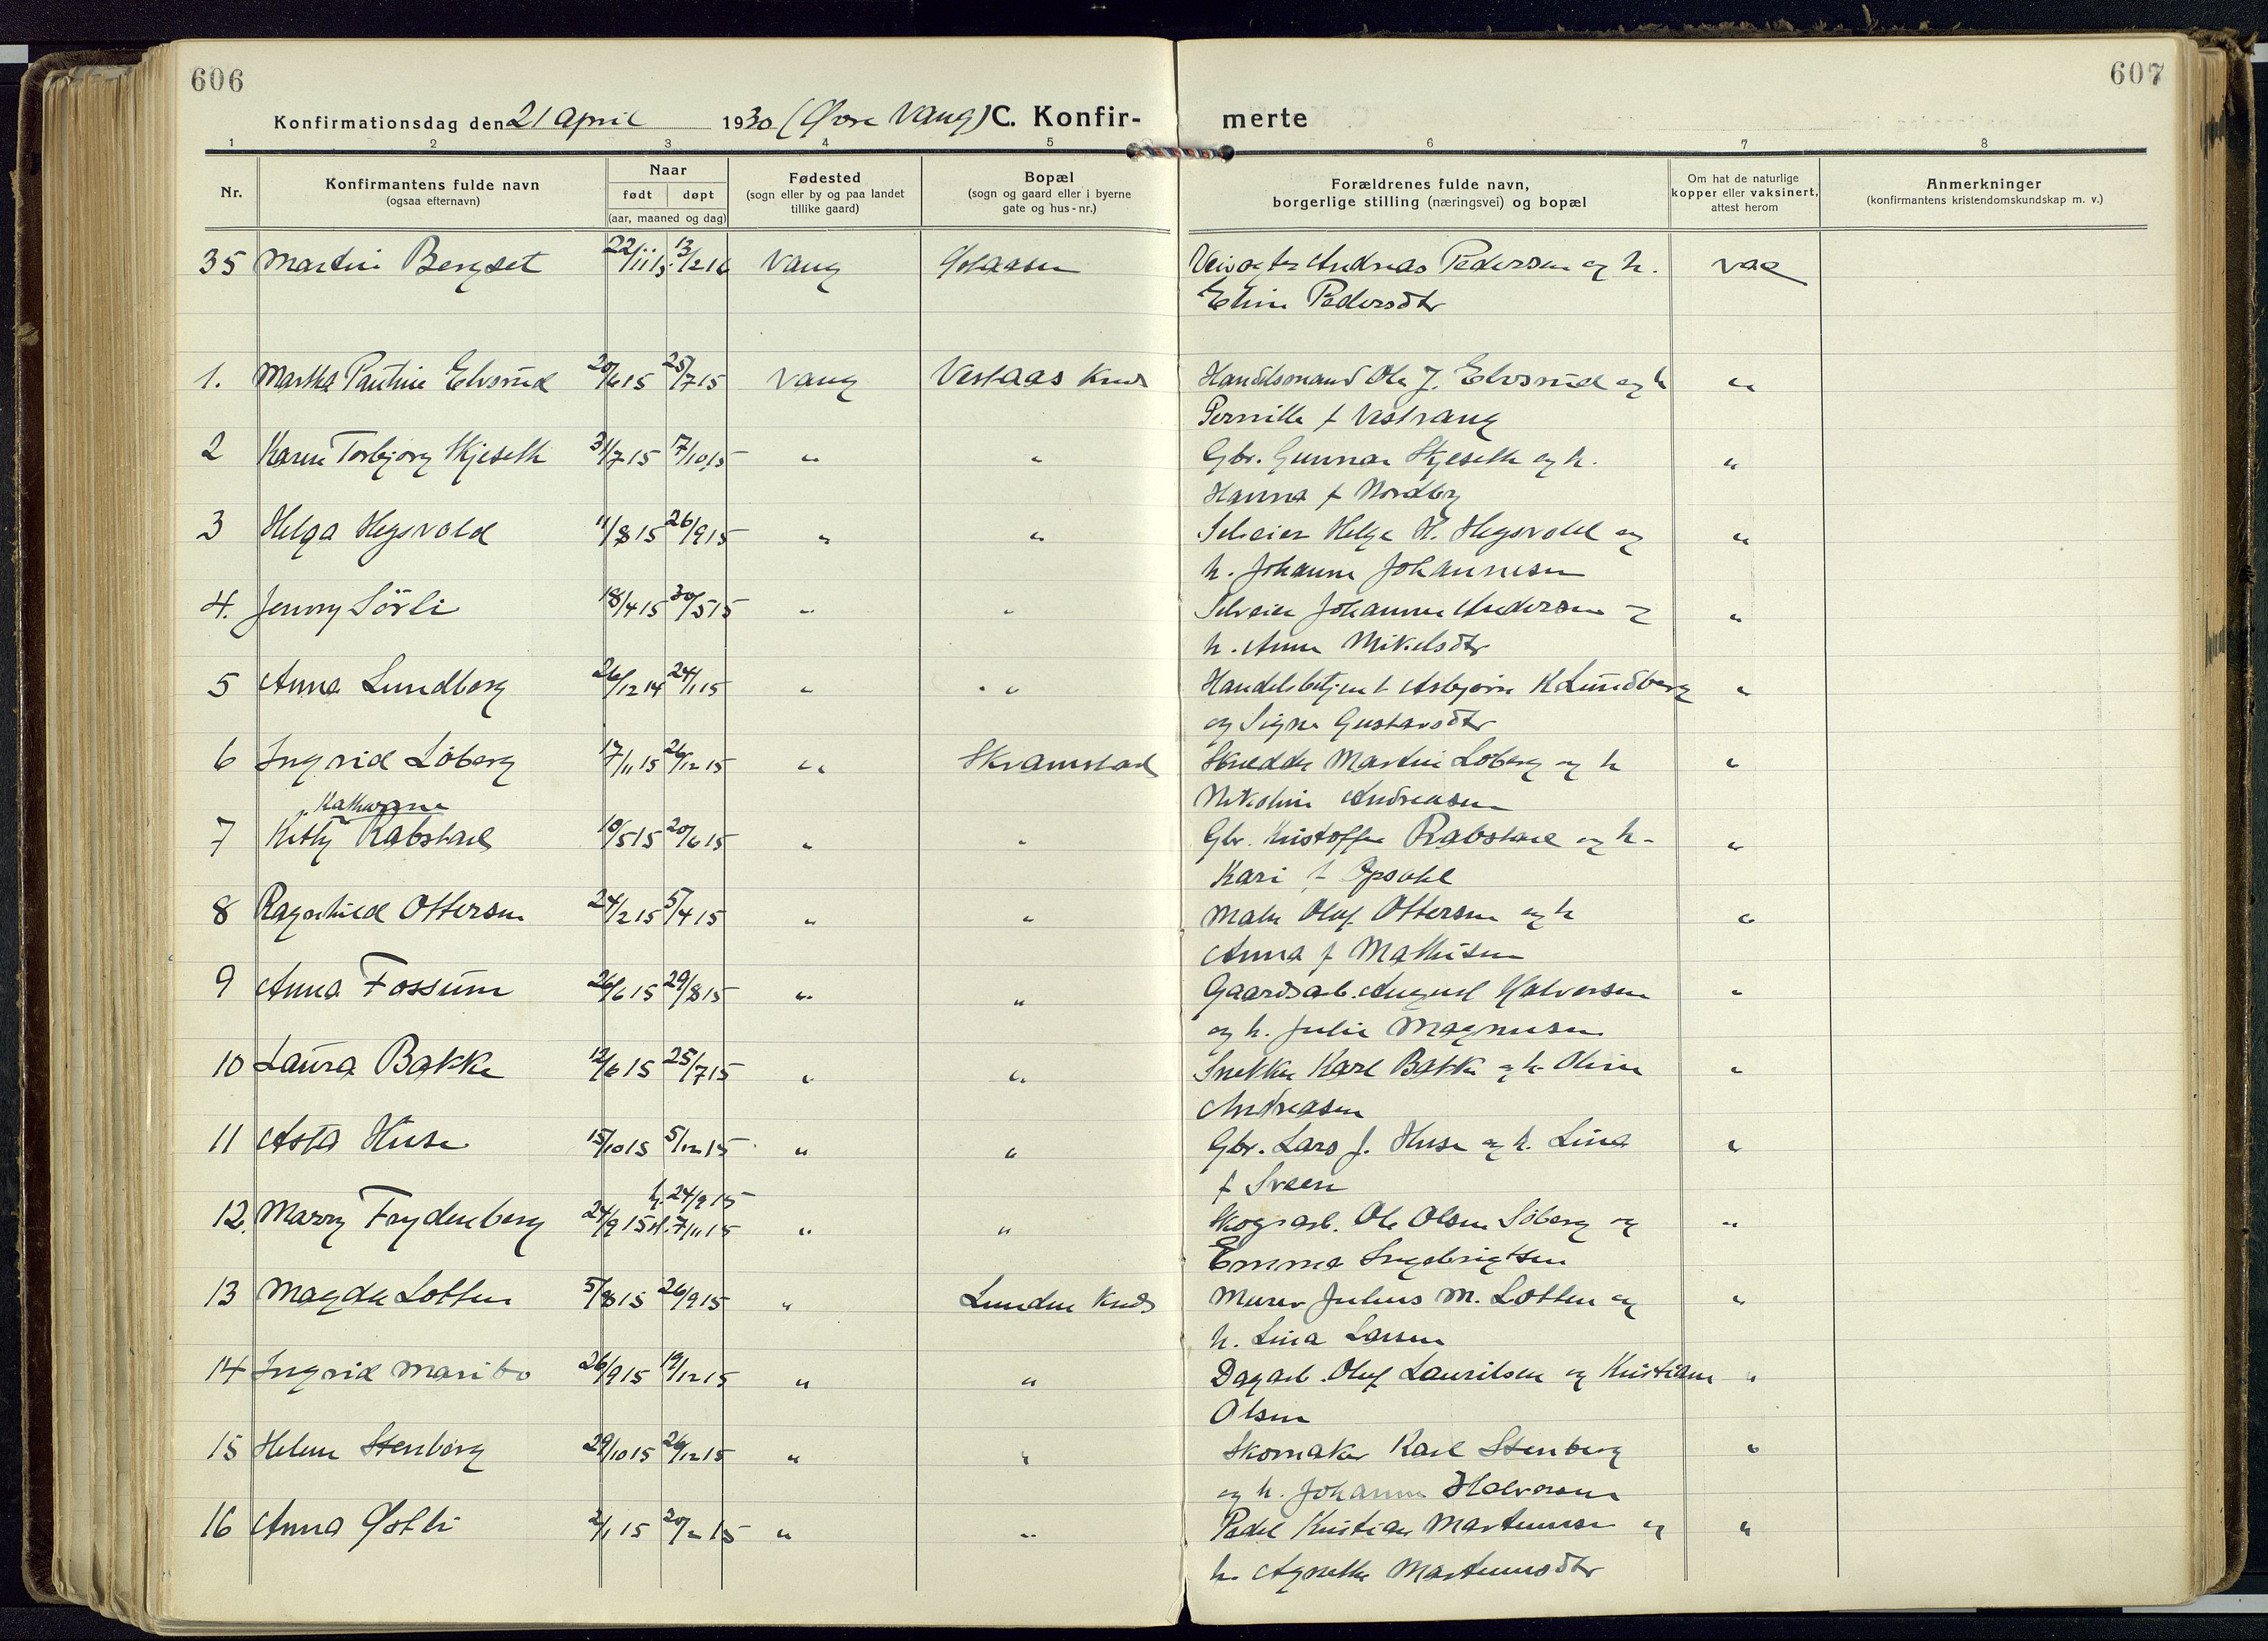 606
607
Konfirmationsdag den 21 April 1930 (Øvre Vang) C. Konfir-
merte
1 2 3 4 5 6 7 8
Nr.
Konfirmantens fulde navn
(ogsaa efternavn)
Naar
født døpt
(aar, maaned og dag)
Fødested
(sogn eller by og paa landet
tillike gaard)
Bopæl
(sogn og gaard eller i byerne
gate og hus-nr.)
Forældrenes fulde navn,
borgerlige stilling (næringsvei) og bopæl
Om hat de naturlige
kopper eller vaksinert,
attest herom
Anmerkninger
(konfirmantens kristendomskundskap m. v.)
35 Martin Bergset 22/11 15 13/2 16 Vang Veivogter Andreas Pedersen og h. vac
Eline Pedersdtr
1. Martha Pauline Elvsrud 20/6 15 25/7 15 Vang Vestaas Handelsmand Ole J. Elvsrud og h "
Pernille f Vestvang
2 Karen Torbjørg Skjeseth 31/7 15 17/10 15 " " Gbr. Gunnar Skjeseth og h. "
Hanna f Nordby
3 Helga Hegsvold 11/8 15 26/9 15 " " Selveier Helge H. Hegsvold og "
h. Johanne Johannesen
4. Jenny Sörli 18/4 15 30/5 15 " " Selveier Johannes Andersen og "
h. Anne Mikelsdtr
5 Anna Lundberg 26/12 14 24/1 15 " " Handelsbetjent Asbjørn K Lundberg "
og Signe Gustavsdtr
6 Ingrid Löberg 17/11 15 26/12 15 " Skramstad Skredder Martin Löberg og h "
Nikoline Andreasen
7 Kitty Rabstad 10/5 15 20/6 15 " " Gbr. Kristoffer Rabstad og h. "
Kari f Opsahl
8 Ragnhild Ottersen 24/2 15 5/4 15 " " Maler Oluf Ottersen og h "
Anna f Mathisen
9 Anna Fossum 26/6 15 29/8 15 " " Gaardsarb. August Halvorsen "
og h. Julie Magnusen
10 Laura Bakke 12/6 15 25/7 15 " " Snekker Karl Bakke og h. Oline "
Andreasen
11 Asta Huse 15/10 15 5/12 15 " " Gbr. Lars J. Huse og h. Lina "
f Sveen
h. 24/9 15
12. Marry Frydenberg 24/9 15 st. 7/11 15 " " Skogsarb. Ole Olsen Söberg og "
Emma Ingebrigtsen
13 Magda Lotten 5/8 15 26/9 15 " Lunden Murer Julius M. Lotten og "
h. Lina Larsen
14 Ingrid Maribo 26/9 15 19/12 15 " " Dagarb. Oluf Lauritsen og Kristiane "
Olsen
15 Helene Stenberg 29/10 15 26/12 15 " " Skomaker Karl Stenberg "
og h. Johanne Halvorsen
16 Anna 2/1 15 20/2 15 " " Pedel Kristian Martinusen og "
h. Agnethe Martinusdtr